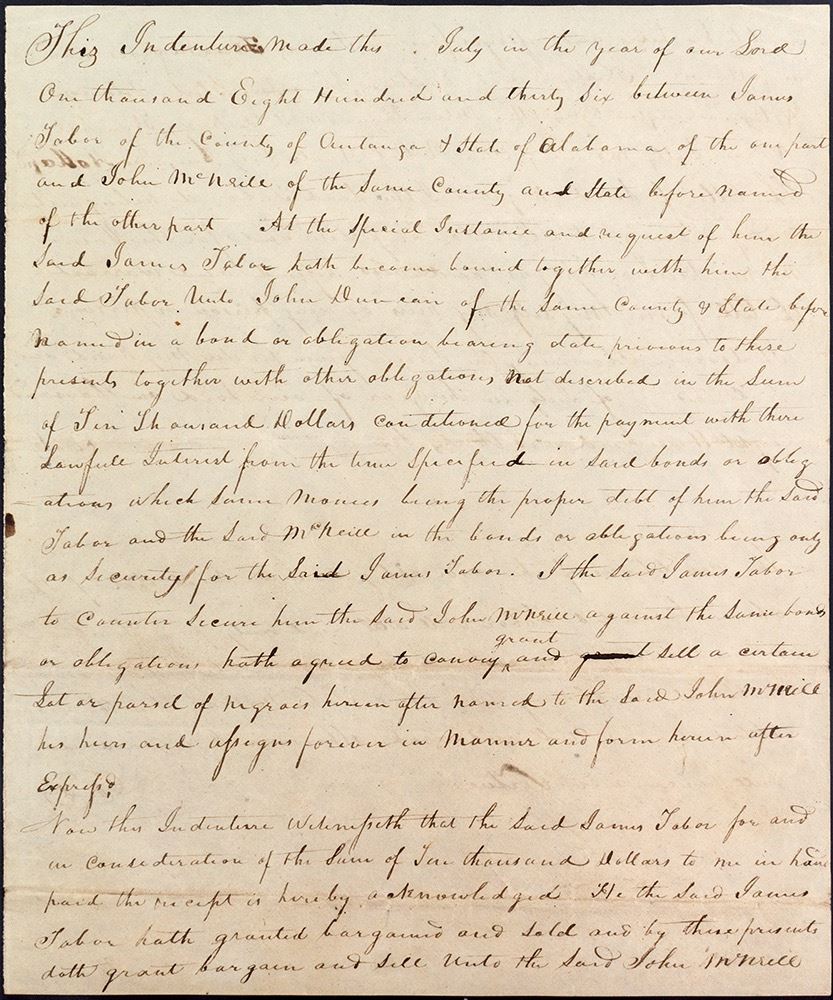 This Indenture Made this . July in the year of our Lord
One thousand Eight Hundred and thirty Six between James
Tabor of the County of Autauga & State of Alabama of the one part
and John McNeill of the Same County and State before named
of the other part At the Special Instance and request of him the
Said James Tabor hath become bound together with him the
Said Tabor Unto John Duncan of the Same County & State before
Named in a bond or obligation bearing date previous to these
presents together with other obligations Not described in the Sum
of Ten Thousand Dollars Conditioned for the payment with there
Lawfull Interest from the time Specified in Said bonds or oblig
ations which Same Monies being the proper debt of him the Said
Tabor and the Said McNeill in the bonds or obligations being only
as Security for the Said James Tabor. I the Said James Tabor
to Counter Secure him the Said John McNeill against the Same bonds
or obligations hath agreed to convey grant and sell a certain
Lot or parsel of negroes herein after named to the Said John McNeill
his heirs and assigns forever in Manner and form herein after
Express'd
Now this Indenture Witnesseth that the Said James Tabor for and
in consideration of the Sum of Ten thousand Dollars to me in hand
paid the receipt is hereby acknowledged He the Said James
Tabor hath granted bargained and Sold and by these presents
doth grant bargain and Sell Unto the Said John McNeill